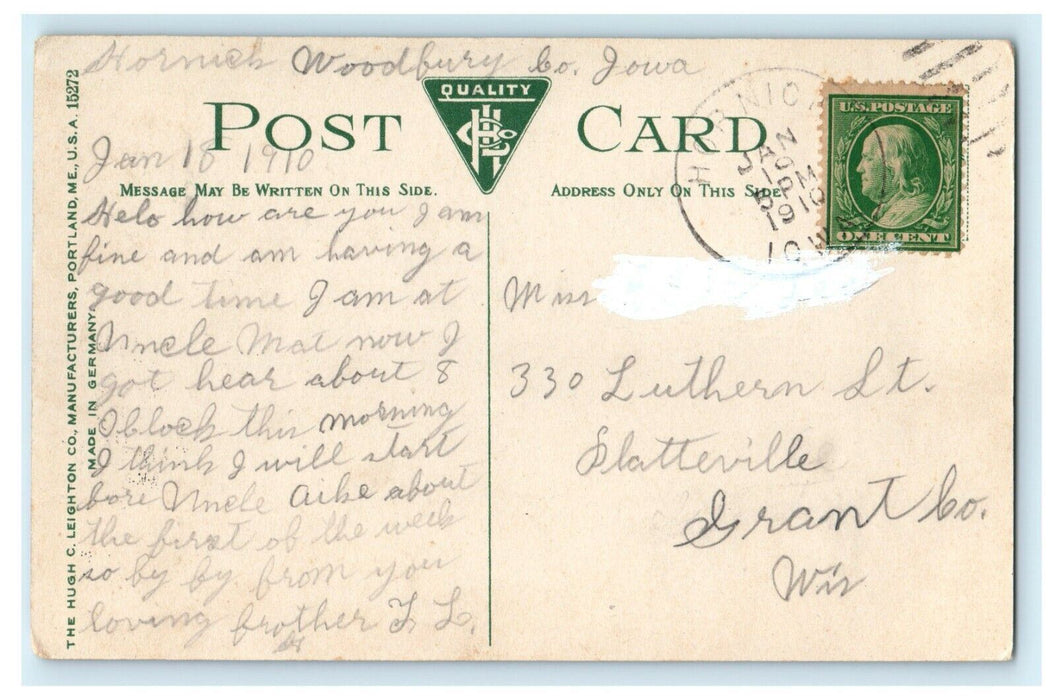 Hornick Woodbury Co. Iowa
POST CARD
QUALITY
HORNICK
JAN
19
5 PM
1910
IOWA
U.S. POSTAGE
ONE CENT
Jan 18 1910
MESSAGE MAY BE WRITTEN ON THIS SIDE.
ADDRESS ONLY ON THIS SIDE
Helo how are you I am
fine and am having a
good time I am at
Uncle Mat now I
got hear about 8
Oblock this morning
I think I will start
fore Uncle Aike about
the first of the week
so by by from you
loving brother L L.
Miss
330 Luthern St.
Platteville
Grant Co.
Wis
THE HUGH C. LEIGHTON CO., MANUFACTURERS, PORTLAND, ME., U.S.A. 15272
MADE IN GERMANY.